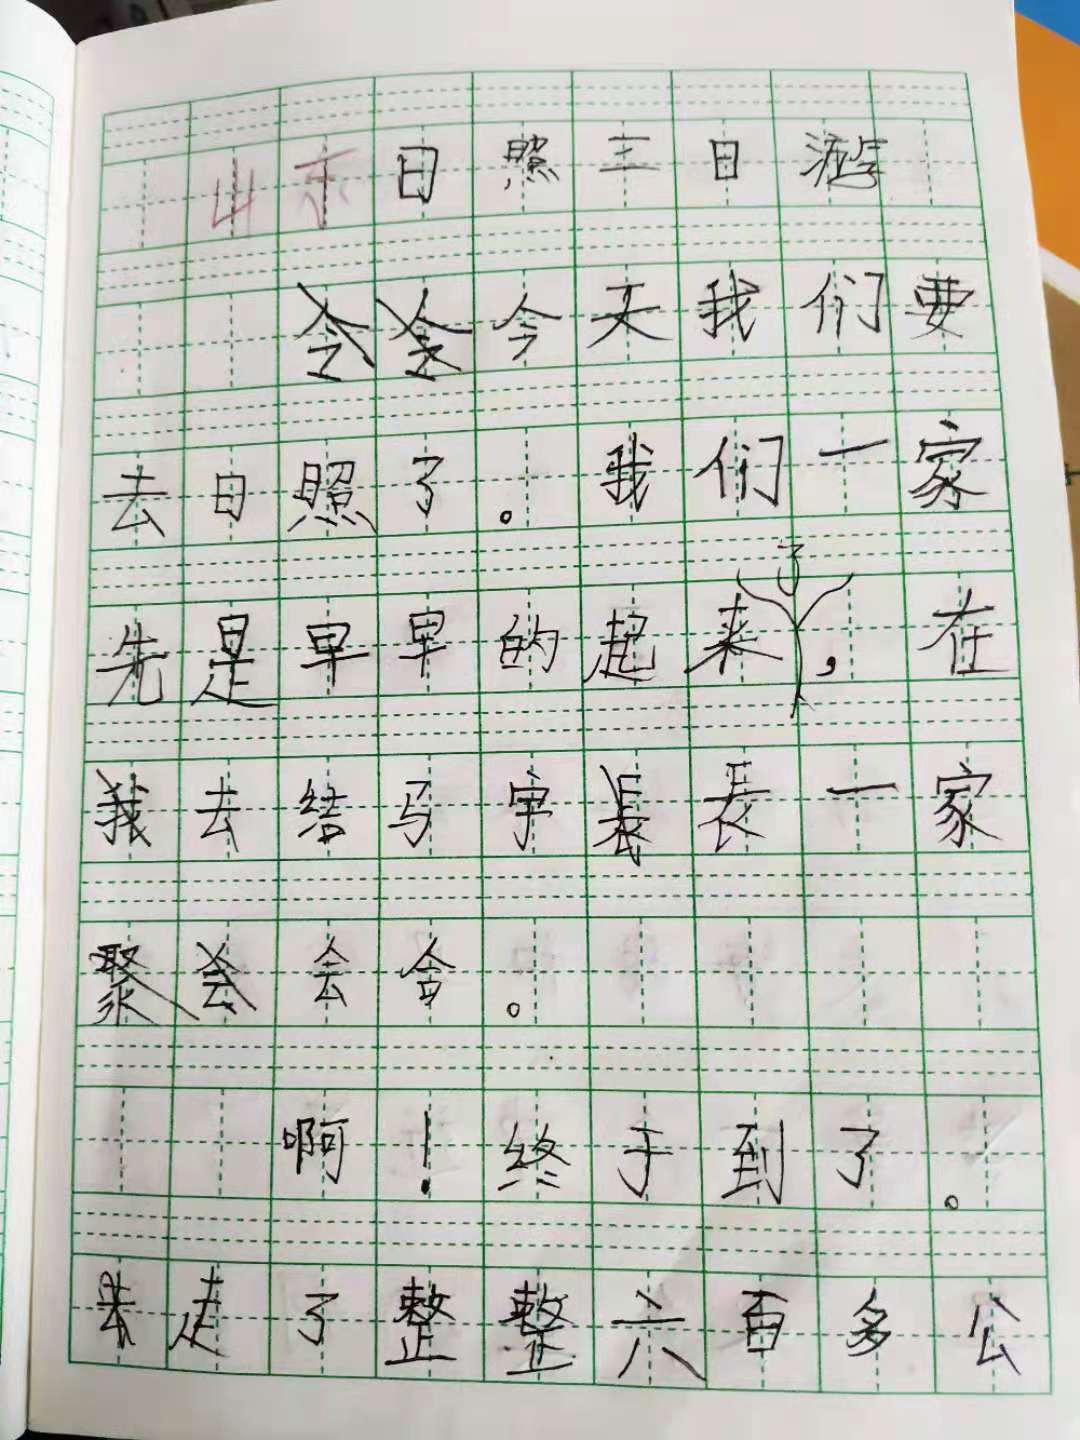 山东日照三日游
今天我们要
去日照了。我们一家
先是早早的起来了,在
去结马宇長一家
会合。
啊!终于到了。
走了整整六百多公